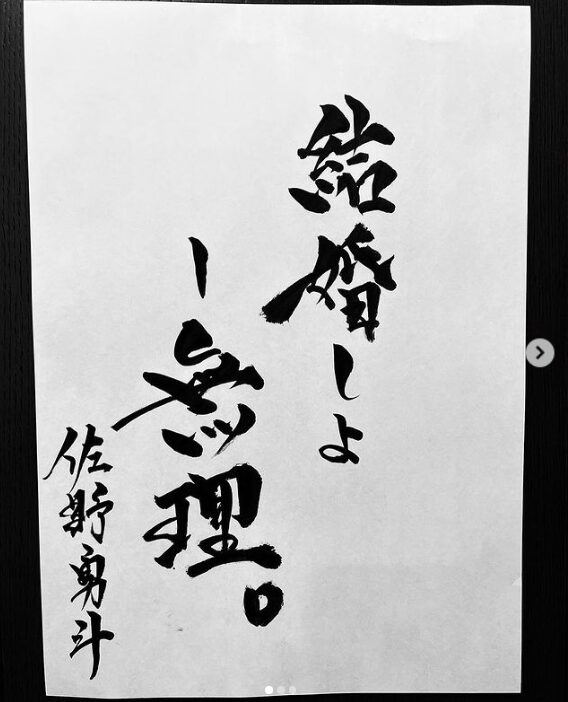 結婚しよ
ー無理。
佐野勇斗